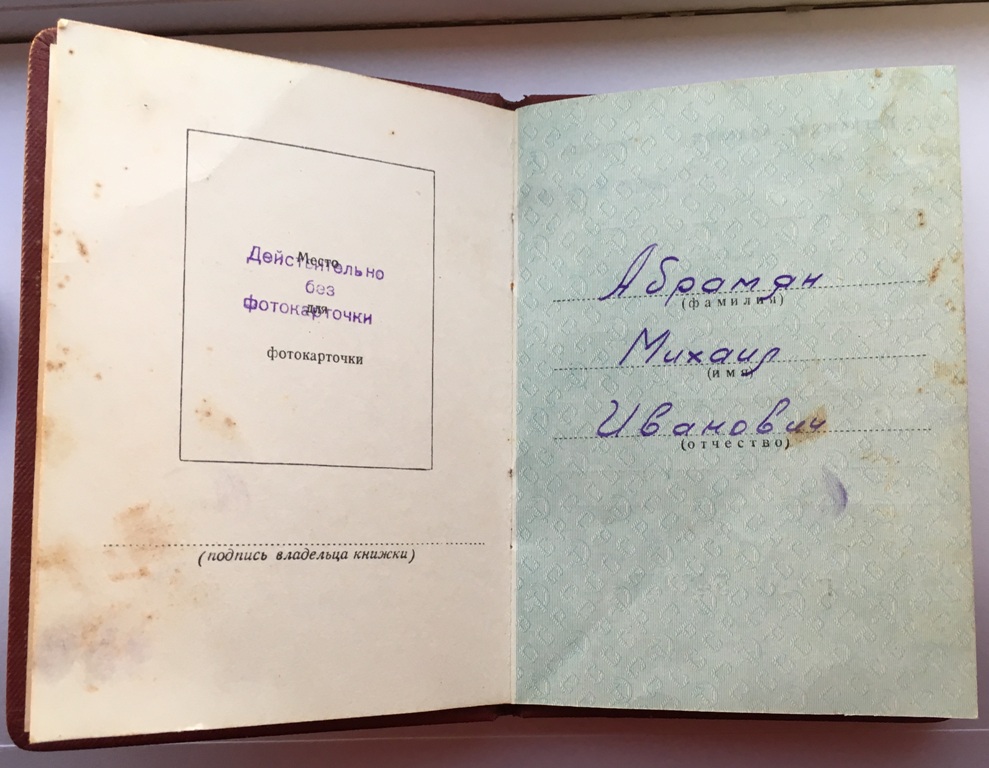 Место
Действительно
без
для
фотокарточки
фотокарточки
(подпись владельца книжки)
Абрамян
(фамилия)
Михаил
(имя)
Иванович
(отчество)